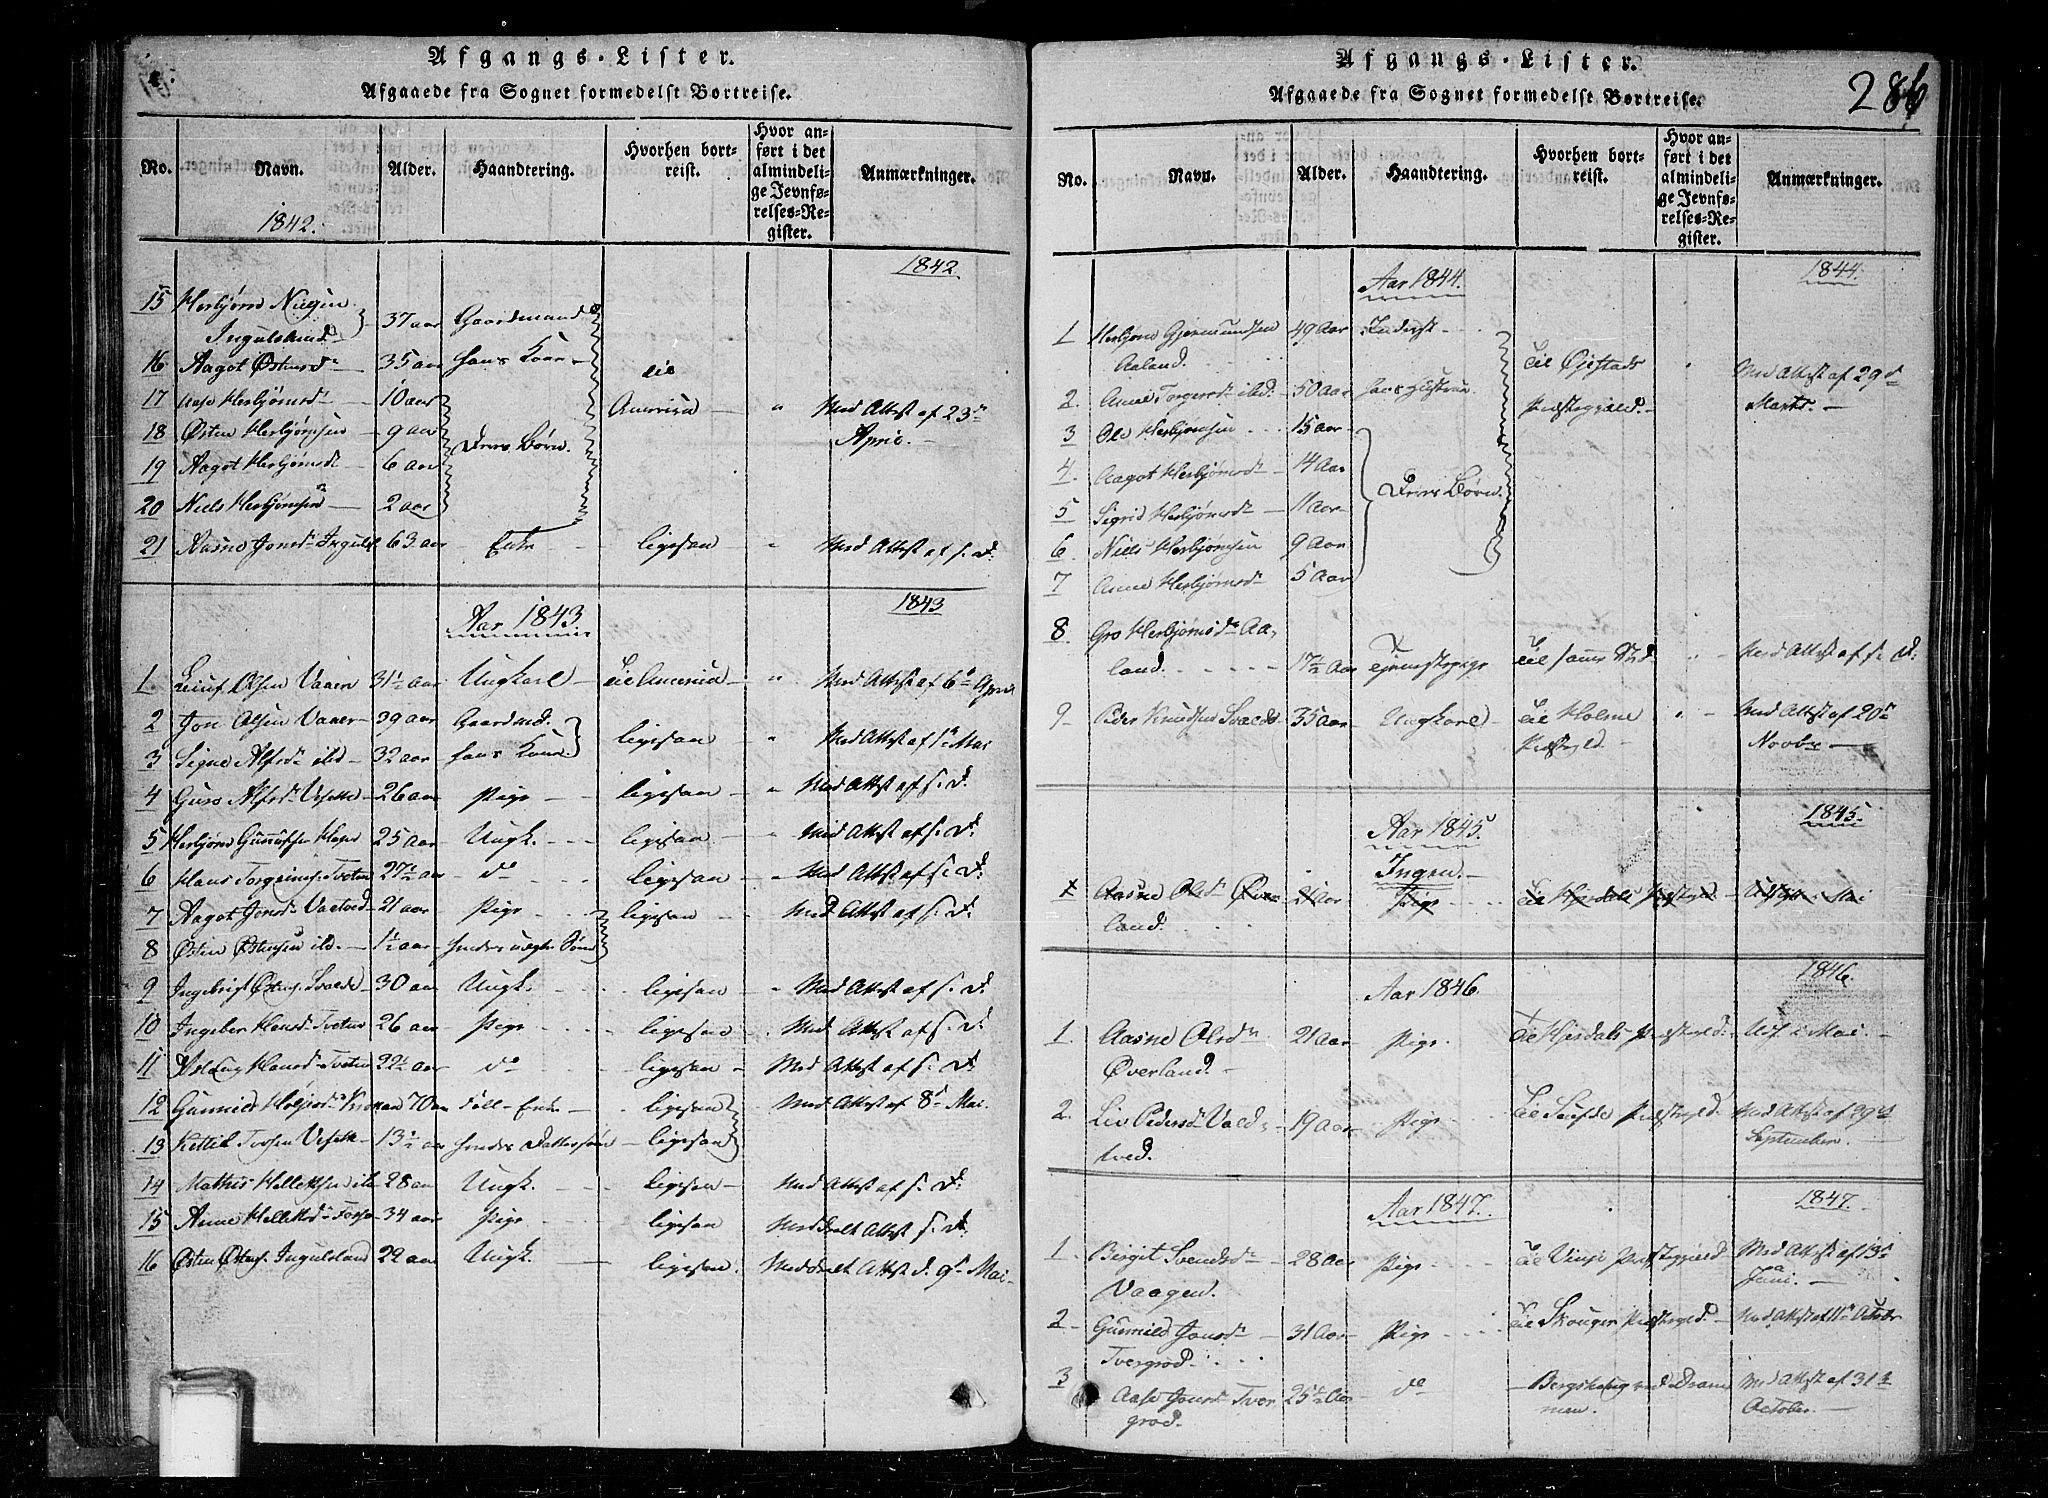 Afgangs-Lister.
Afgaaede fra Sognet formedelst Bortreise.
No. Navn. Alder. Haandtering. Hvorhen bortreist. Hvor anført i det almindelige Jevnførelses-Register. Anmærkninger.
1842.
1842.
15 Herbjørn Nielsen
Ingulsland 37 aar Gaardmand
16 Aagot Østensd 35 aar hans Kone til
17 Aase Herbjørnsd 10 aar America " Med Attest af 23de
18 Østen Herbjørnsen 9 aar Deres Børn April
19 Aagot Herbjørnsd 6 aar
20 Niels Herbjørnsen 2 aar
21 Aasne Jonsd Ingulsl 63 aar Enke ligesaa " Med Attest af s. D.
Aar 1843. 1843
1. Leiuf Olsen Vaaer 31½ aar Ungkarl til America " Med Attest af 6te April
2 Jon Olsen Vaaer 39 aar Gaardmd. ligesaa " Med Attest af 1te Mai
3 Signe Alfsd ibd 32 aar hans Kone
4 Guro Alfsd Vesetle 26 aar Pige ligesaa " Med Attest af s. D.
5 Herbjørn Gunulfsen 25 aar Ungk. ligesaa " Med Attest af s. D.
6 Hans Torgrims. Tveten 27½ aar do ligesaa Med Attest af s. D.
7 Aagot Jonsd 21 aar Pige ligesaa Med Attest af s. D.
8 Østen Østensen ibd. 1½ aar hendes uægte Søn
9 Ingebrigt Østens. Svalde 30 aar Ungk. ligesaa Med Attest af s. D.
10 Ingeber Hansd Tveten 26 aar Pige ligesaa Med Attest af s. D.
11 Aslaug Hansd Tveten 22½ aar do ligesaa Med Attest af s. D.
12 Gunnild 70 aar Føll-Enke ligesaa Med Attest af 8de Mai.
13 Kettil Vesetle 13½ aar hendes Dattersøn ligesaa
14 Mathis Helleksen ibd 28 aar Ungk. ligesaa Med Attest af s. D.
15 Anne Helleksd 34 aar Pige ligesaa Meddeelt Attest s. D.
16 Østen Østens. Ingulsland 22 aar Ungk. ligesaa. Meddeelt Attest d. 9de Mai
Afgangs-Lister.
Afgaaede fra Sognet formedelst Bortreise.
286
No. Navn. Alder. Haandtering. Hvorhen bortreist. Hvor anført i det almindelige Jevnførelses-Register. Anmærkninger.
Aar 1844. 1844.
1 Herbjørn Gjermundsen 49 Aar Inderst
Aaland. til Øiestads " Med Attest af 29de
2. Anne Torgersd ibd. 50 aar hans Hustrue Præstegjeld. Marts.
3 Ole Herbjørnsen 15 aar
4. Aagot Herbjørnsd 14 Aar Deres Børn.
5 Sigrid Herbjørnsd 11 aar
6. Niels Herbjørnsen 9 Aar
7 Anne Herbjørnsd 5 Aar
8 Gro Herbjørnsd Aa-
land. 17½ Aar Tjenestepige til samme Sted " Med Attest af s. D.
9 Peder Knudsen Svalde 35 aar Ungkarl til Holme " Med Attest af 20de
Præstegjeld Novbr
Aar 1845. 1845.
Ingen.
1 Aasne Olsd Øver- 21 aar Pige til Hjerdals Præstegjeld Mai
land.
Aar 1846. 1846.
1. Aasne Olsd 21 Aar Pige til Hjerdals Præstegjeld Udf. i Mai.
Øverland.
2. Liv Pedersd Vald- 19 Aar Pige til Præstegjeld. Med Attest af 29de
tved. September.
Aar 1847. 1847.
1. Birgit Svendsd 28 Aar Pige til Vinje Præstegjeld Med Attest af 13de
Vaagen. Juni.
2 Gunnild Jonsd 31 Aar Pige til Skouger Præstegjeld Med Attest af 11te Octobr
Tvergrod
3 Aase Jonsd Tver- 25½ Aar do Bergskoug ved Dram- Med Attest af 31te
grod. men. October.